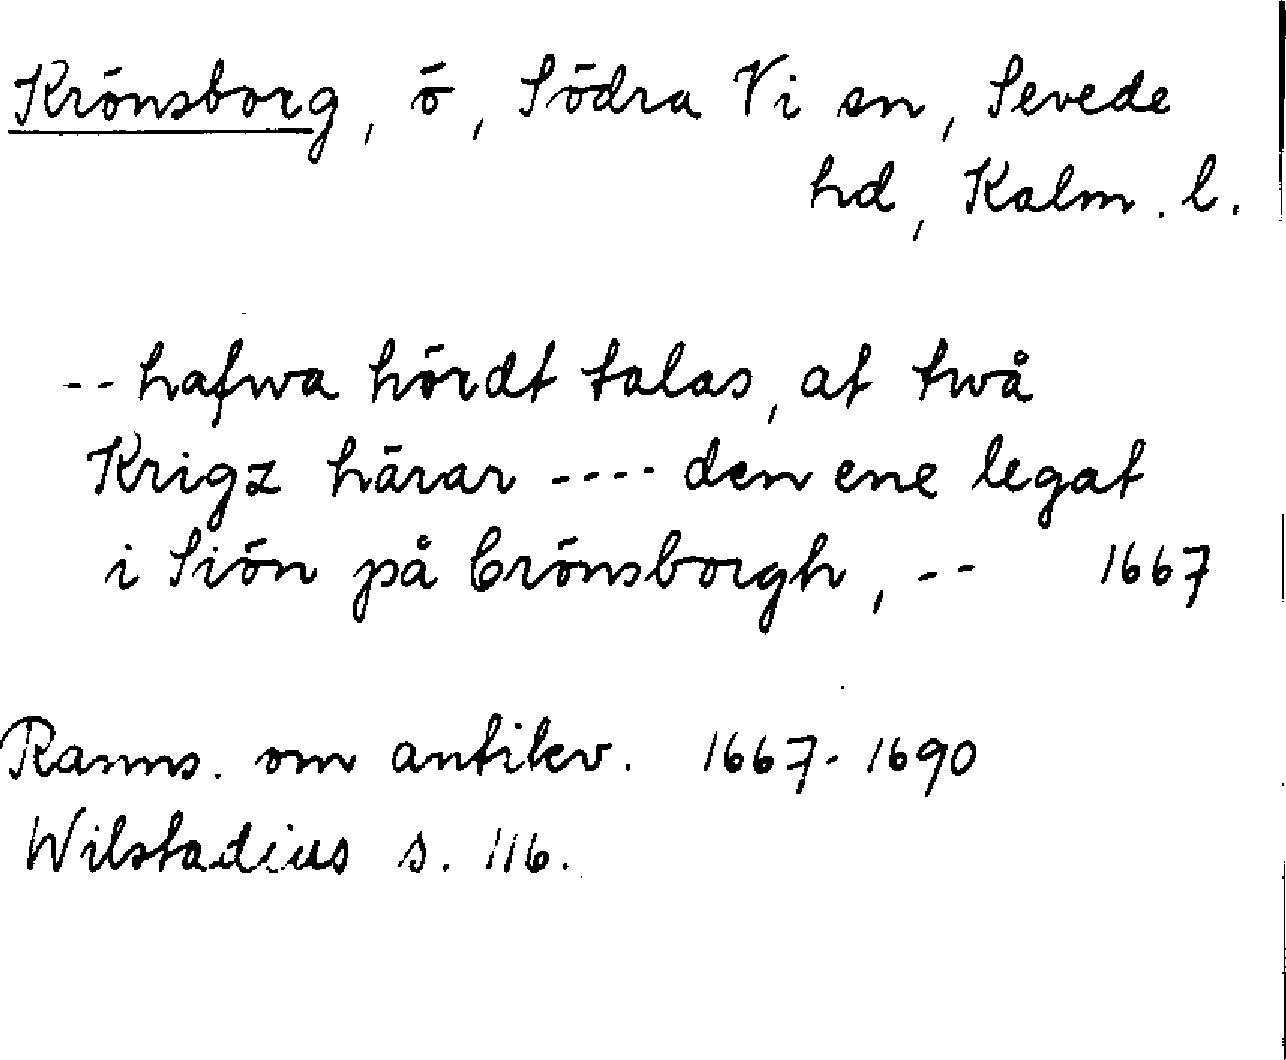 Krönsborg, ö, Södra Vi sn, Sevede
hd, Kalm. l.
-- hafwa hördt talas, at twå
Krigz härar ---- den ene legat
i Siön på Crönsborgh, -- 1667
Ranns. om antikv. 1667-1690
Wilstadius s. 116.